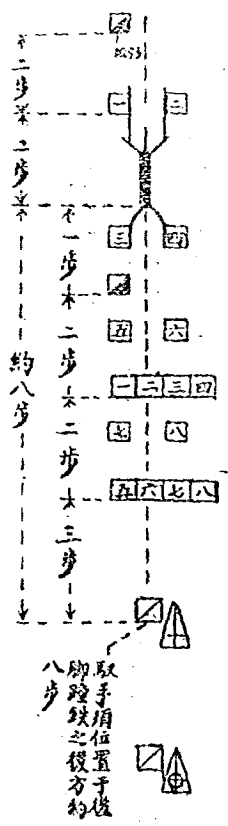 二步
二步
約八步
一步
二步
二步
三步
一 二
三 四
五 六
一二三四
七 八
五六七八
馭手須位置于後
脚鉄之後方約
八步